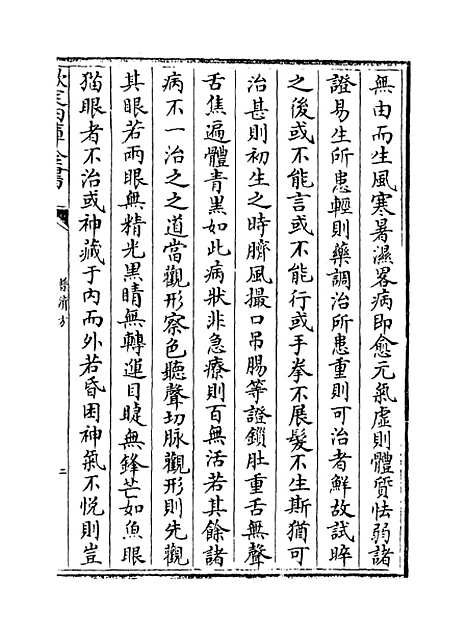 無由而生風寒暑濕畧病即愈元氣虛則體質怯弱諸
證易生所患輕則藥調治所患重則可治者鮮故試晬
之後或不能言或不能行或手拳不展髮不生斯猶可
治甚則初生之時臍風撮口吊腸等證鎖肚重舌無聲
舌焦遍體青黑如此病狀非急療則百無活若其餘諸
病不一治之之道當觀形察色聽聲切脉觀形則先觀
其眼若兩眼無精光黑睛無轉運目睫無鋒芒如魚眼
猫眼者不治或神藏于内而外若昏困神氣不悦則豈
欽定四庫全書
普濟方
二